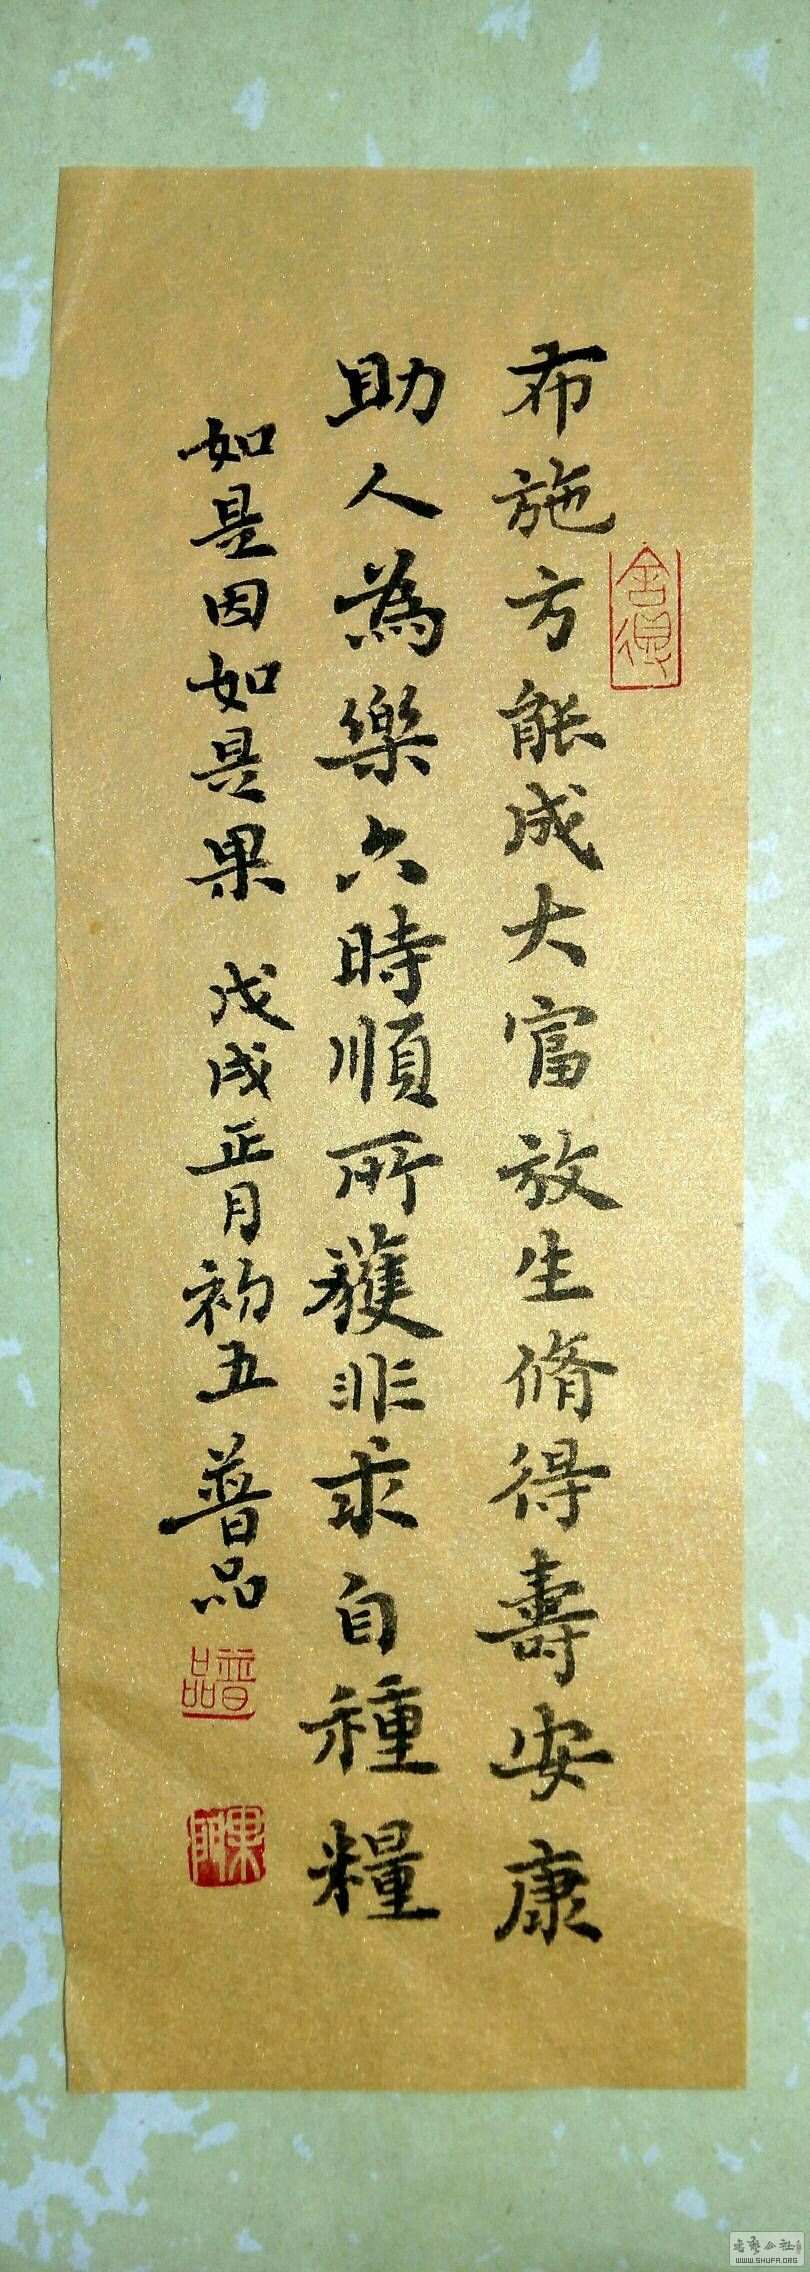 布施方能成大富放生脩得壽安康
助人為樂六時順所獲非求自種糧
如是因如是果 戊戌正月初五 普品
舍得
普品
書藝公社
WWW.SHUFA.ORG